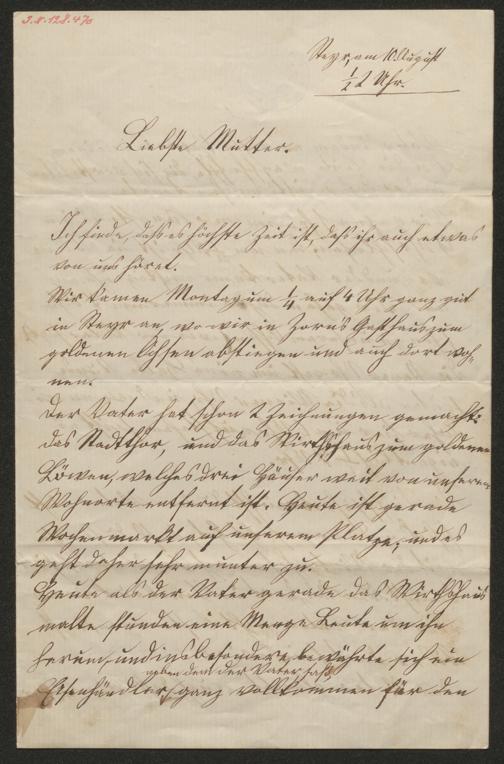 J.N. 128.470
Steyr, am 10 August
1/2 2 Uhr.
Liebste Mutter.
Ich finde, dass es höchste Zeit ist, dass ihr auch etwas
von uns höret.
Wir kamen Montag um 1/4 auf 4 Uhr ganz gut
in Steyr an, wo wir in Zorns Gasthaus zum
goldenen Ochsen abstiegen und auch dort woh-
nen.
Der Vater hat schon 2 Zeichnungen gemacht:
das Stadtthor, und das Wirthshaus zum goldenen
Löwen, welches drei Häuser weit von unserem
Wohnorte entfernt ist. Heute ist gerade
Wochenmarkt auf unserem Platze, und es
geht daher sehr munter zu.
Heute als der Vater gerade das Wirthshaus
malte stunden eine Menge Leute um ihn
herum, und insbesondere bewährte sich ein
neben dem der Vater saß
Eisenhändler, ganz vollkommen für den